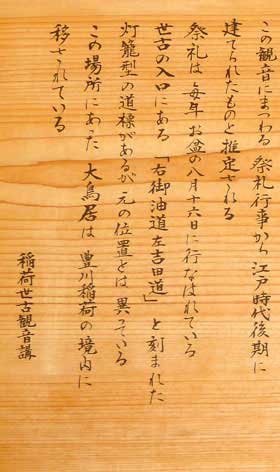 この観音にまつわる祭礼行事から江戸時代後期に
建てられたものと推定される
祭礼は毎年お盆の八月十六日に行なはれている
世古の入口にある「右御油道左吉田道」と刻まれた
灯籠型の道標があるが元の位置とは異っている
この場所にあった大鳥居は豊川稲荷の境内に
移されている
稲荷世古観音講